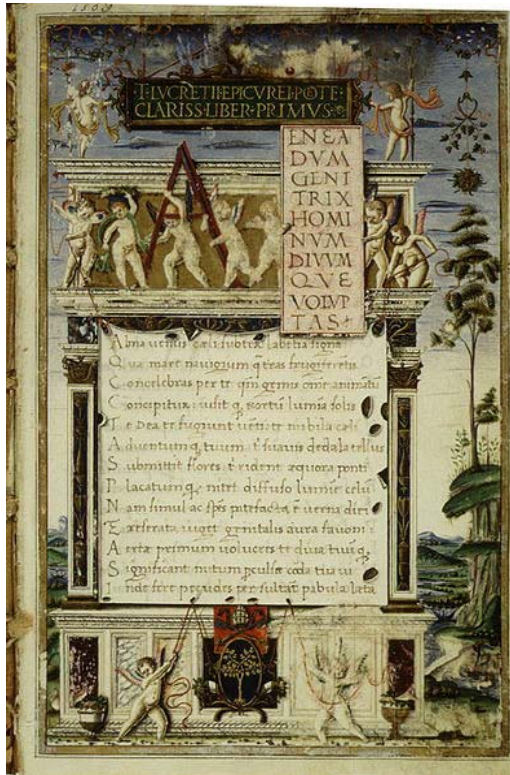 1483
T·LVCRETII·EPICVREI·POTE·
CLARISS·LIBER·PRIMVS·
A
ENEA
DVM
GENI
TRIX
HOMI
NVM
DIVVM
QVE
VOLVP
TAS
Alma uenus cæli subter labētia signa
Quæ mare nauigerum q̄ terras frugiferētis
Concelebras per te qm̄ genus om̄e animātū
Concipitur uisit q, exortū lumīa solis
Te Dea te fugiunt uēti te nubila cæli
Aduentumq, tuum t suauis dedala tellus
Submittit flores t rident æquora ponti
Placatumq, nitet diffuso lumīe celū
Nam simul ac spēs patefacta ē uerna diei
Et reserata uiget genitalis aura fauoni
Aeriæ primum uolucres te diua tuūq,
Significant initum pculsæ corda tua ui
Inde feræ pecudes persultāt pabula læta